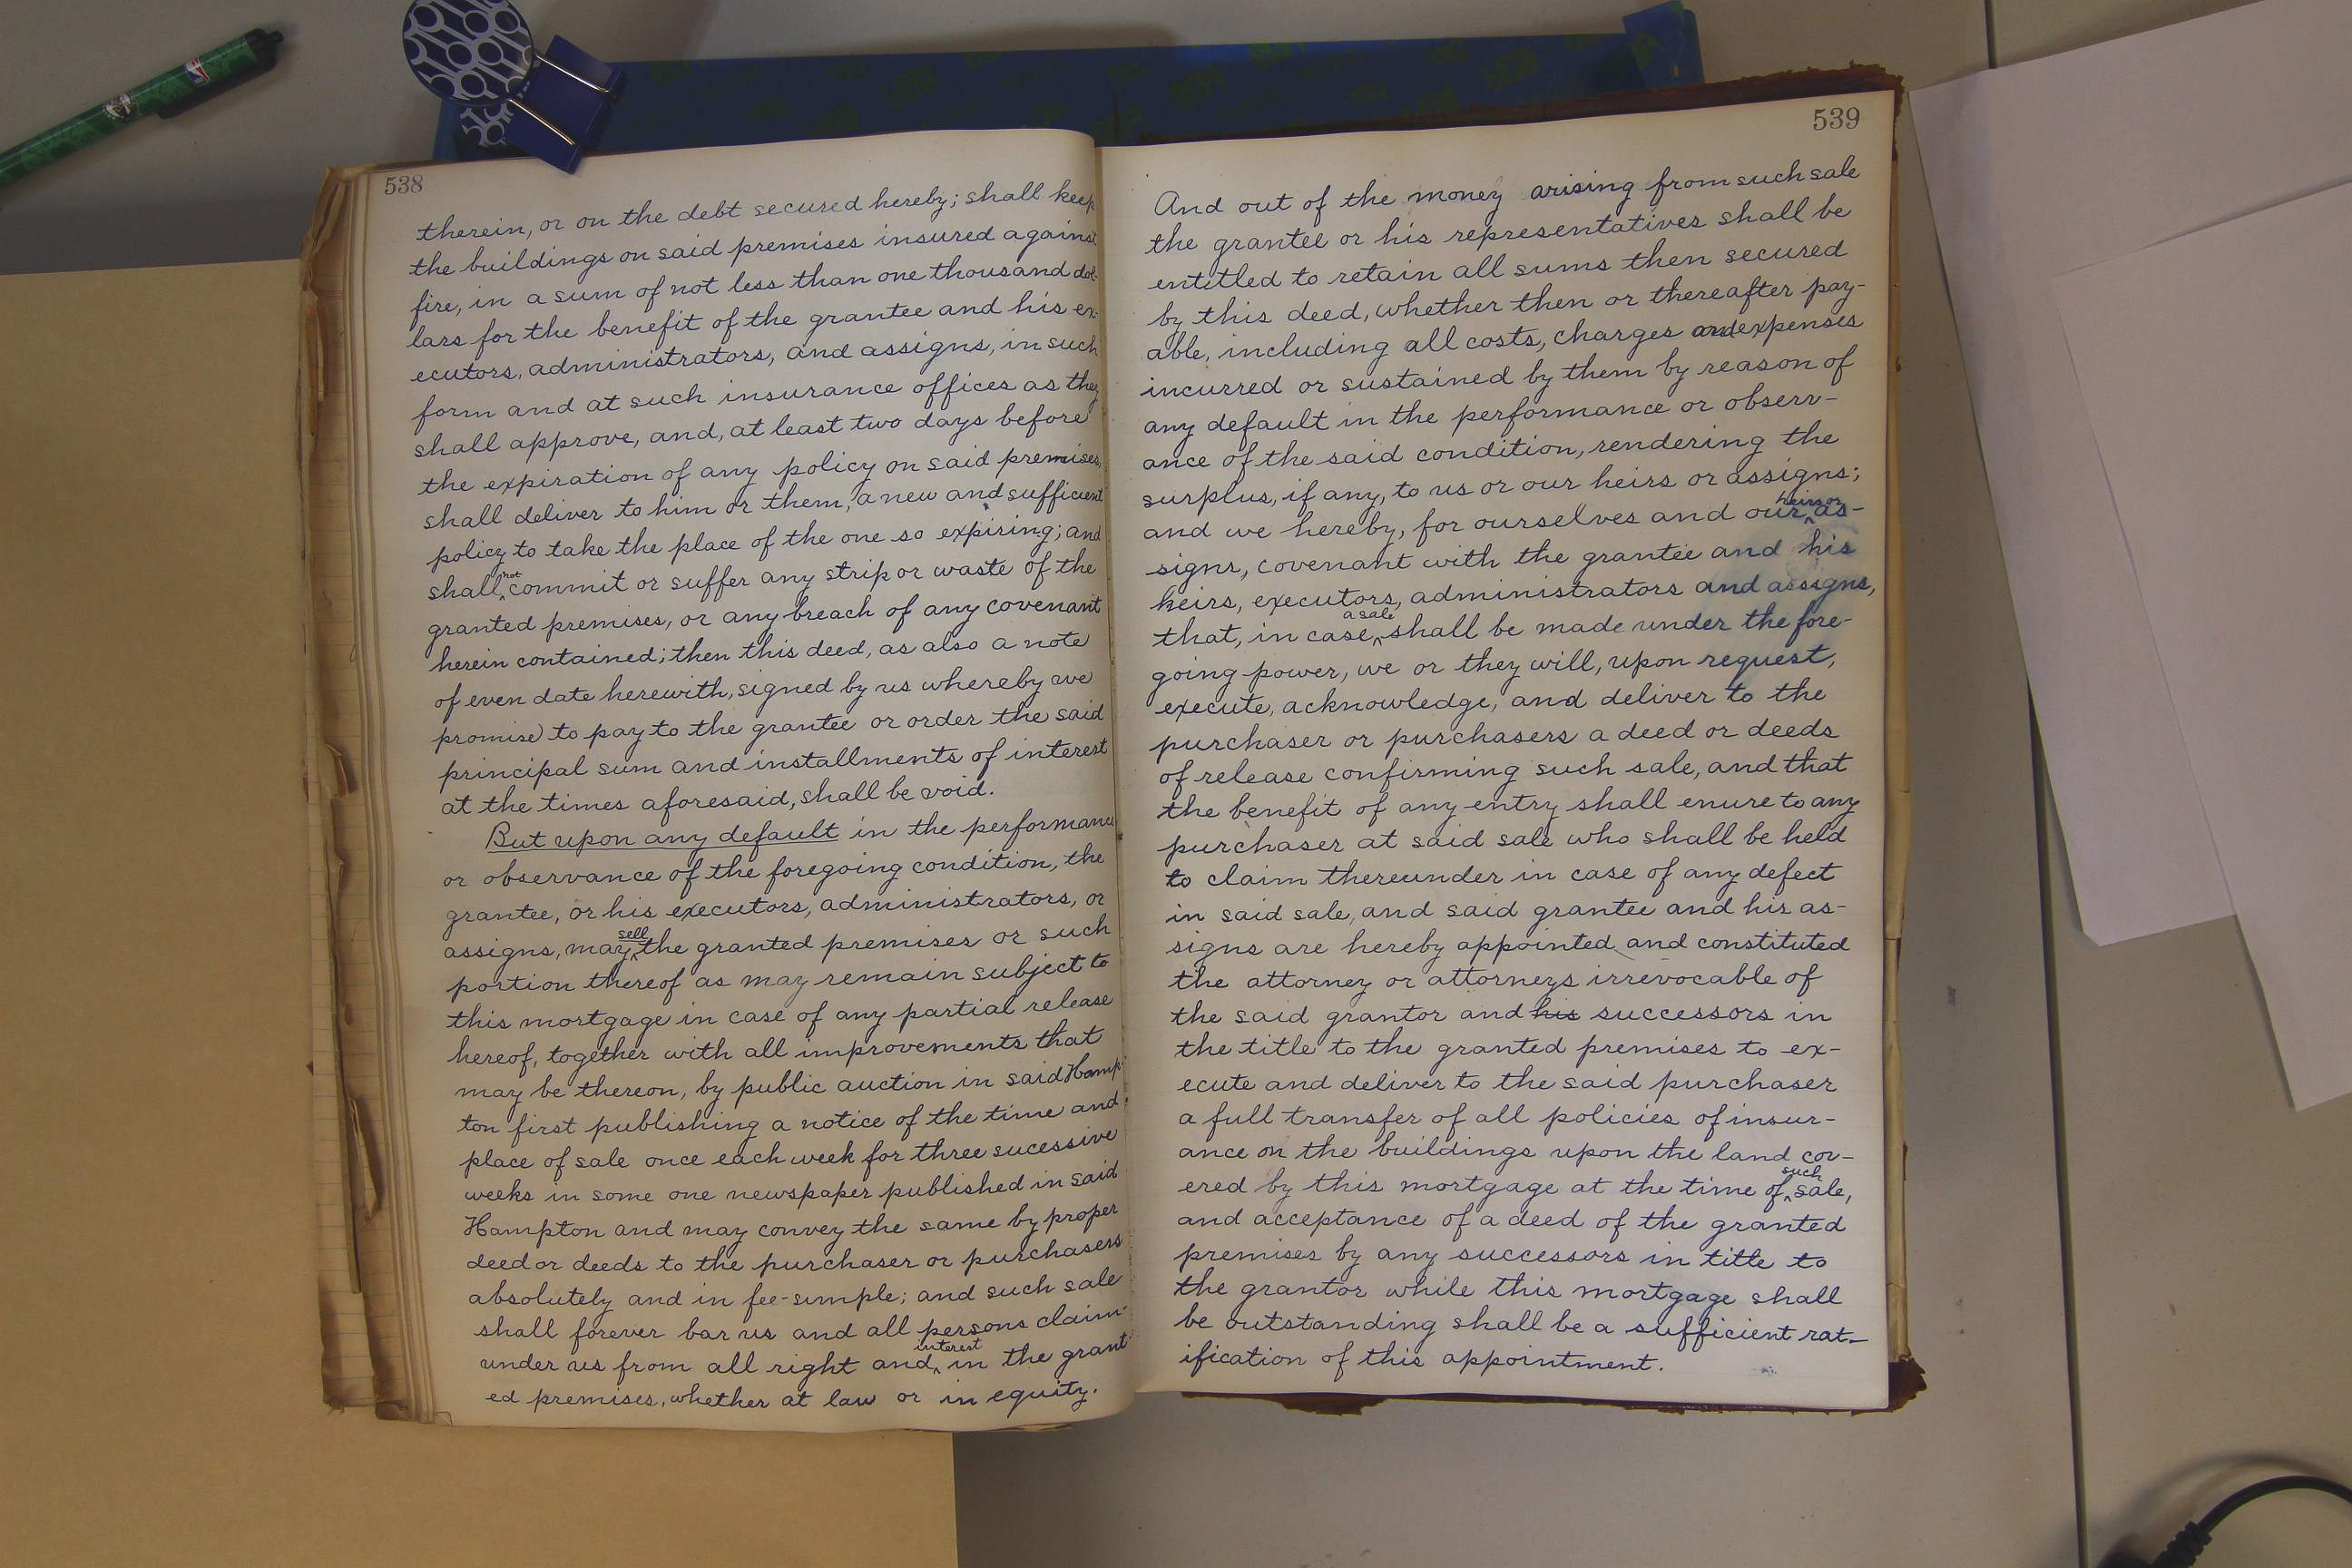 538
therein, or on the debt secured hereby; shall keep
the buildings on said premises insured against
fire, in a sum of not less than one thousand dol-
lars for the benefit of the grantee and his ex-
ecutors, administrators, and assigns, in such
form and at such insurance offices as they
shall approve, and, at least two days before
the expiration of any policy on said premises,
shall deliver to him or them, a new and sufficient
policy to take the place of the one so expiring; and
shall not commit or suffer any strip or waste of the
granted premises, or any breach of any covenant
herein contained; then this deed, as also a note
of even date herewith, signed by us whereby we
promise to pay to the grantee or order the said
principal sum and installments of interest
at the times aforesaid, shall be void.
But upon any default in the performance
or observance of the foregoing condition, the
grantee, or his executors, administrators, or
assigns, may sell the granted premises or such
portion thereof as may remain subject to
this mortgage in case of any partial release
hereof, together with all improvements that
may be thereon, by public auction in said Hamp-
ton first publishing a notice of the time and
place of sale once each week for three sucessive
weeks in some one newspaper published in said
Hampton and may convey the same by proper
deed or deeds to the purchaser or purchasers
absolutely and in fee-simple; and such sale
shall forever bar us and all persons claim-
under us from all right and interest in the grant
ed premises, whether at law or in equity.
539
And out of the money arising from such sale
the grantee or his representatives shall be
entitled to retain all sums then secured
by this deed, whether then or thereafter pay-
able, including all costs, charges and expenses
incurred or sustained by them by reason of
any default in the performance or observ-
ance of the said condition, rendering the
surplus, if any, to us or our heirs or assigns;
and we hereby, for ourselves and our heirs or as-
signs, covenant with the grantee and his
heirs, executors, administrators and assigns,
that, in case a sale shall be made under the fore-
going power, we or they will, upon request,
execute, acknowledge, and deliver to the
purchaser or purchasers a deed or deeds
of release confirming such sale, and that
the benefit of any entry shall enure to any
purchaser at said sale who shall be held
to claim thereunder in case of any defect
in said sale, and said grantee and his as-
signs are hereby appointed and constituted
the attorney or attorneys irrevocable of
the said grantor and his successors in
the title to the granted premises to ex-
ecute and deliver to the said purchaser
a full transfer of all policies of insur-
ance on the buildings upon the land cov-
ered by this mortgage at the time of such sale,
and acceptance of a deed of the granted
premises by any successors in title to
the grantor while this mortgage shall
be outstanding shall be a sufficient rat-
ification of this appointment.